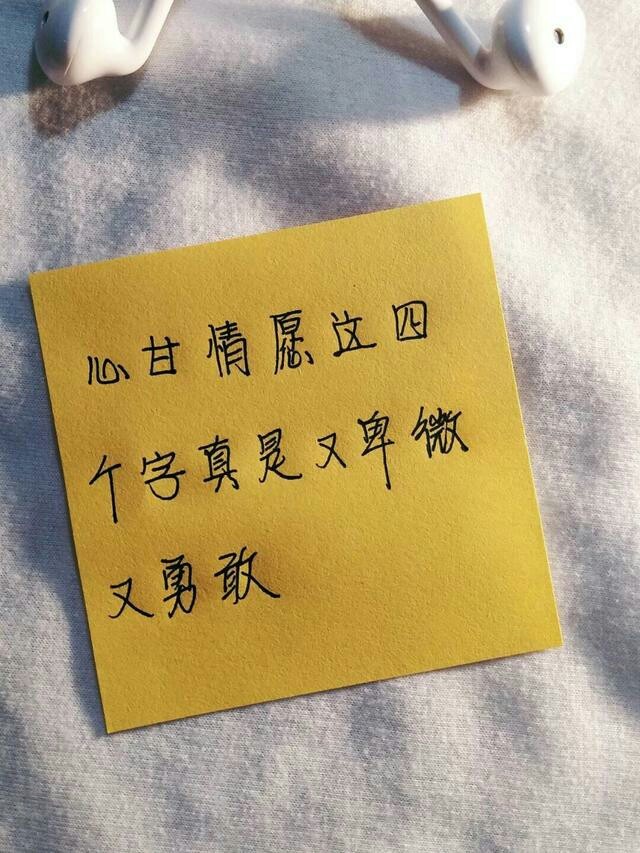 心甘情愿这四
个字真是又卑微
又勇敢